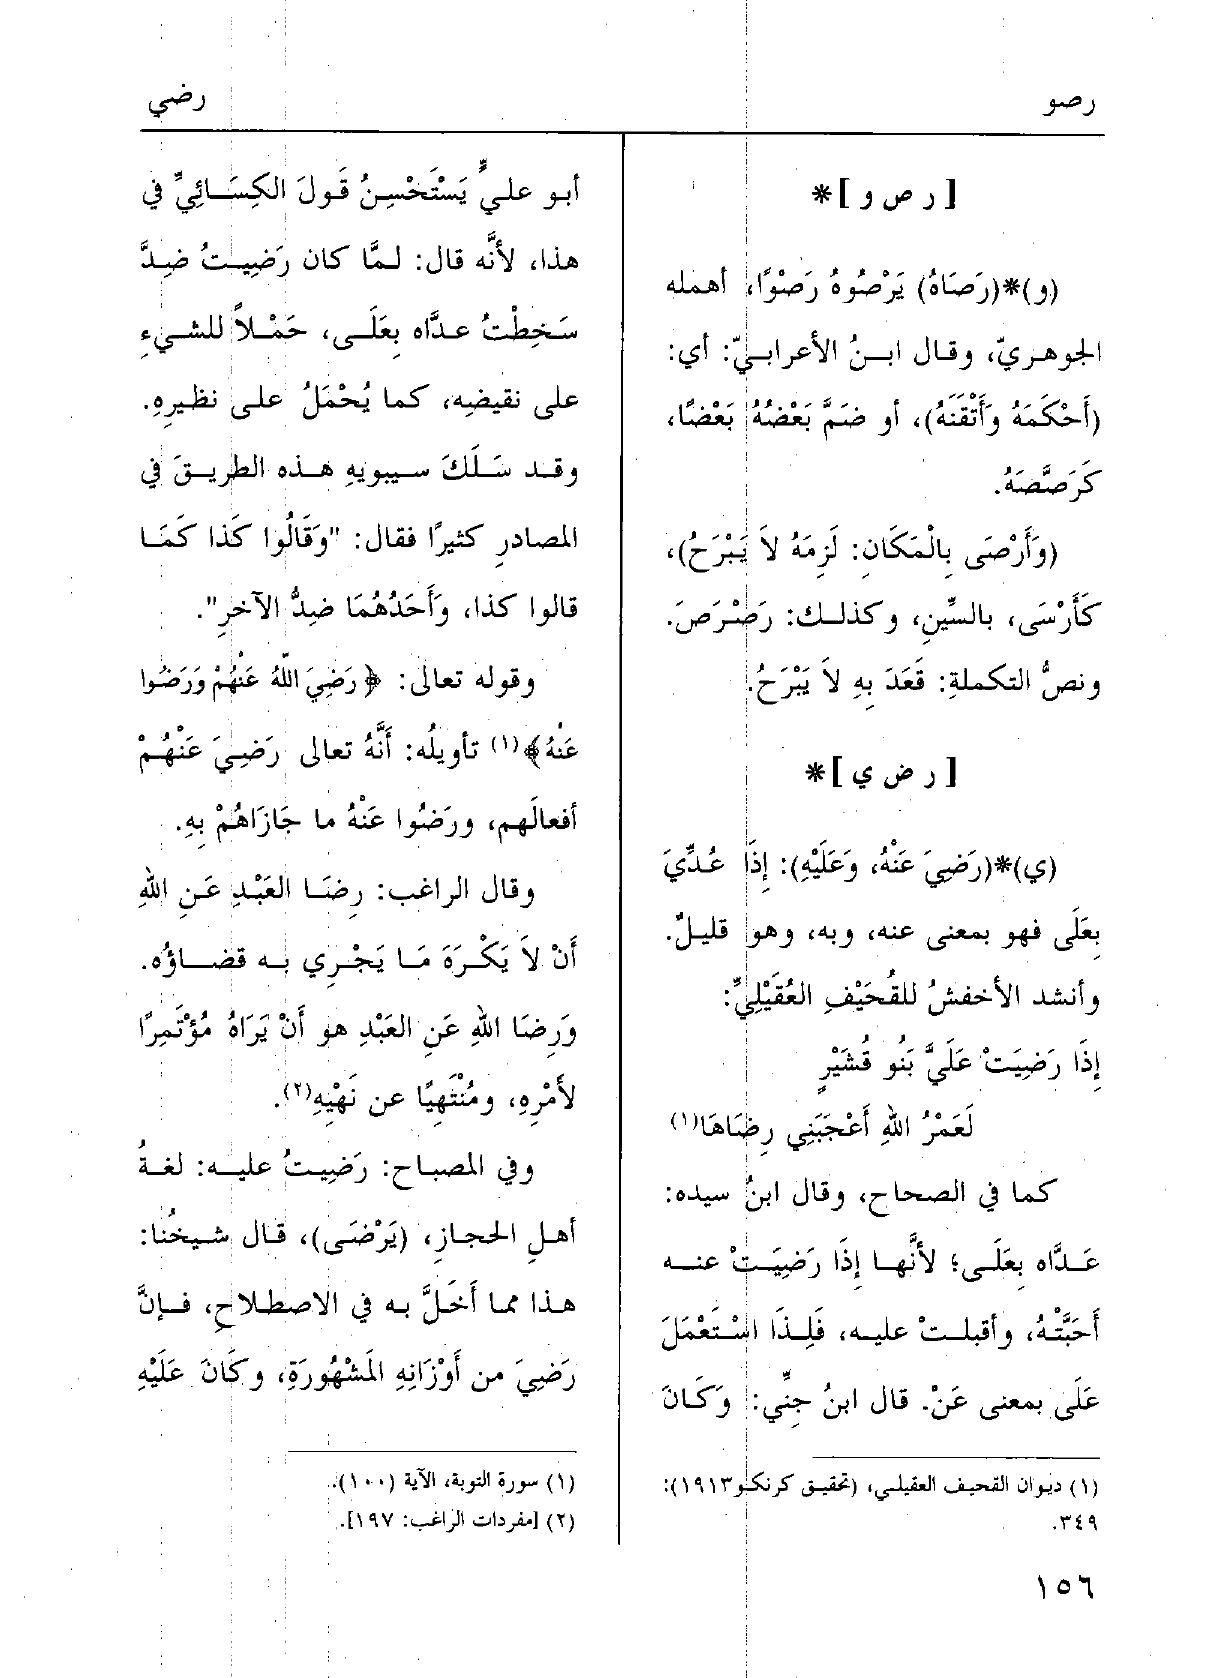 رصو
رضي
[ ر ص و ]*
(و)*(رَصَاهُ) يَرْصُوهُ رَصْوًا، أهمله
الجوهريّ، وقال ابنُ الأعرابيّ: أي:
(أَحْكَمَهُ وَأَتْقَنَهُ)، أو ضَمَّ بَعْضُهُ بَعْضًا،
كَرَصَّصَهُ.
(وَأَرْصَى بِالْمَكَانِ: لَزِمَهُ لاَ يَبْرَحُ)،
كَأَرْسَى، بالسِّينِ، وكذلك: رَصْرَصَ.
ونصُّ التكملةِ: قَعَدَ بِهِ لاَ يَبْرَحُ.
[ ر ض ي ]*
(ي)*(رَضِيَ عَنْهُ، وَعَلَيْهِ): إِذَا عُدِّيَ
بِعَلَى فهو بمعنى عنه، وبه، وهو قليلٌ.
وأنشد الأخفشُ للقُحَيْفِ العُقَيْلِيِّ:
إِذَا رَضِيَتْ عَلَيَّ بَنُو قُشَيْرٍ
لَعَمْرُ اللهِ أَعْجَبَنِي رِضَاهَا(١)
كما في الصحاح، وقال ابنُ سيده:
عَدَّاه بِعَلَى؛ لأَنَّها إِذَا رَضِيَتْ عنه
أَحَبَّتْهُ، وأقبلتْ عليه، فَلِذَا اسْتَعْمَلَ
عَلَى بمعنى عَنْ. قال ابنُ جِنِّي: وَكَانَ
(١) ديوان القحيف العقيلي، (تحقيق كرنكو١٩١٣):
٣٤٩.
أبو عليٍّ يَسْتَحْسِنُ قَولَ الكِسَائِيِّ في
هذا، لأنَّه قال: لمَّا كان رَضِيتُ ضِدَّ
سَخِطْتُ عدَّاه بِعَلَى، حَمْلاً للشيءِ
على نقيضِه، كما يُحْمَلُ على نظيرِهِ.
وقد سَلَكَ سيبويهِ هذه الطريقَ في
المصادرِ كثيرًا فقال: "وَقَالُوا كَذا كَمَا
قالوا كذا، وَأَحَدُهُمَا ضِدُّ الآخرِ".
وقوله تعالى: ﴿رَضِيَ اللهُ عَنْهُمْ وَرَضُوا
عَنْهُ﴾(١) تأويلُه: أَنَّهُ تعالى رَضِيَ عَنْهُمْ
أفعالَهم، ورَضُوا عَنْهُ ما جَازَاهُمْ بِهِ.
وقال الراغب: رِضَا العَبْدِ عَنِ اللهِ
أَنْ لاَ يَكْرَهَ مَا يَجْرِي بِه قضاؤُه.
وَرِضَا اللهِ عَنِ العَبْدِ هو أَنْ يَرَاهُ مُؤْتَمِرًا
لأَمْرِهِ، ومُنْتَهِيًا عن نَهْيِهِ(٢).
وفي المصباح: رَضِيتُ عليه: لغةُ
أهلِ الحجازِ، (يَرْضَى)، قال شيخُنا:
هذا مما أَخَلَّ به في الاصطلاحِ، فإنَّ
رَضِيَ من أَوْزَانِهِ المَشْهُورَةِ، وكَانَ عَلَيْهِ
(١) سورة التوبة، الآية (١٠٠).
(٢) [مفردات الراغب: ١٩٧].
١٥٦